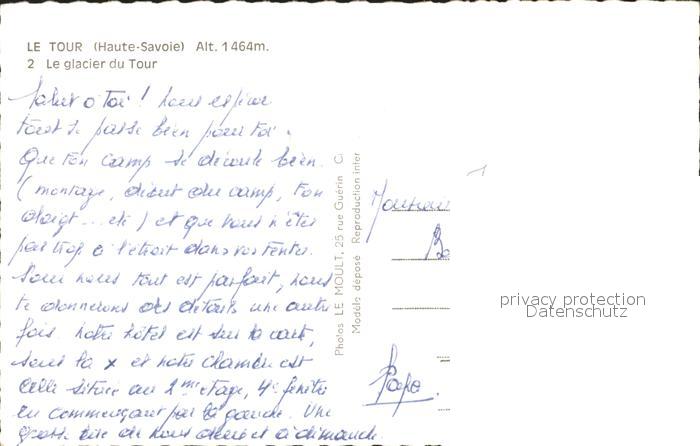 LE TOUR (Haute-Savoie) Alt. 1 464m.
2 Le glacier du Tour
Salut ô Toi ! Nous espérons
tout se passe bien pour toi.
Que ton camp se déroule bien.
(montage, début du camp, ton
doigt... etc) et que vous n'êtes
pas trop à l'étroit dans vos tentes.
Pour nous tout est parfait, nous
te donnerons des détails une autre
fois. Notre hôtel est sur la carte,
sous la x et notre chambre est
celle située au 2me étage, 4e fenêtre
en commençant par la gauche. Une
grosse bise de nous deux et à dimanche.
Photos LE MOULT, 25 rue Guérin
Modèle déposé Reproduction inter
Monsieur
Pape.
privacy protection
Datenschutz